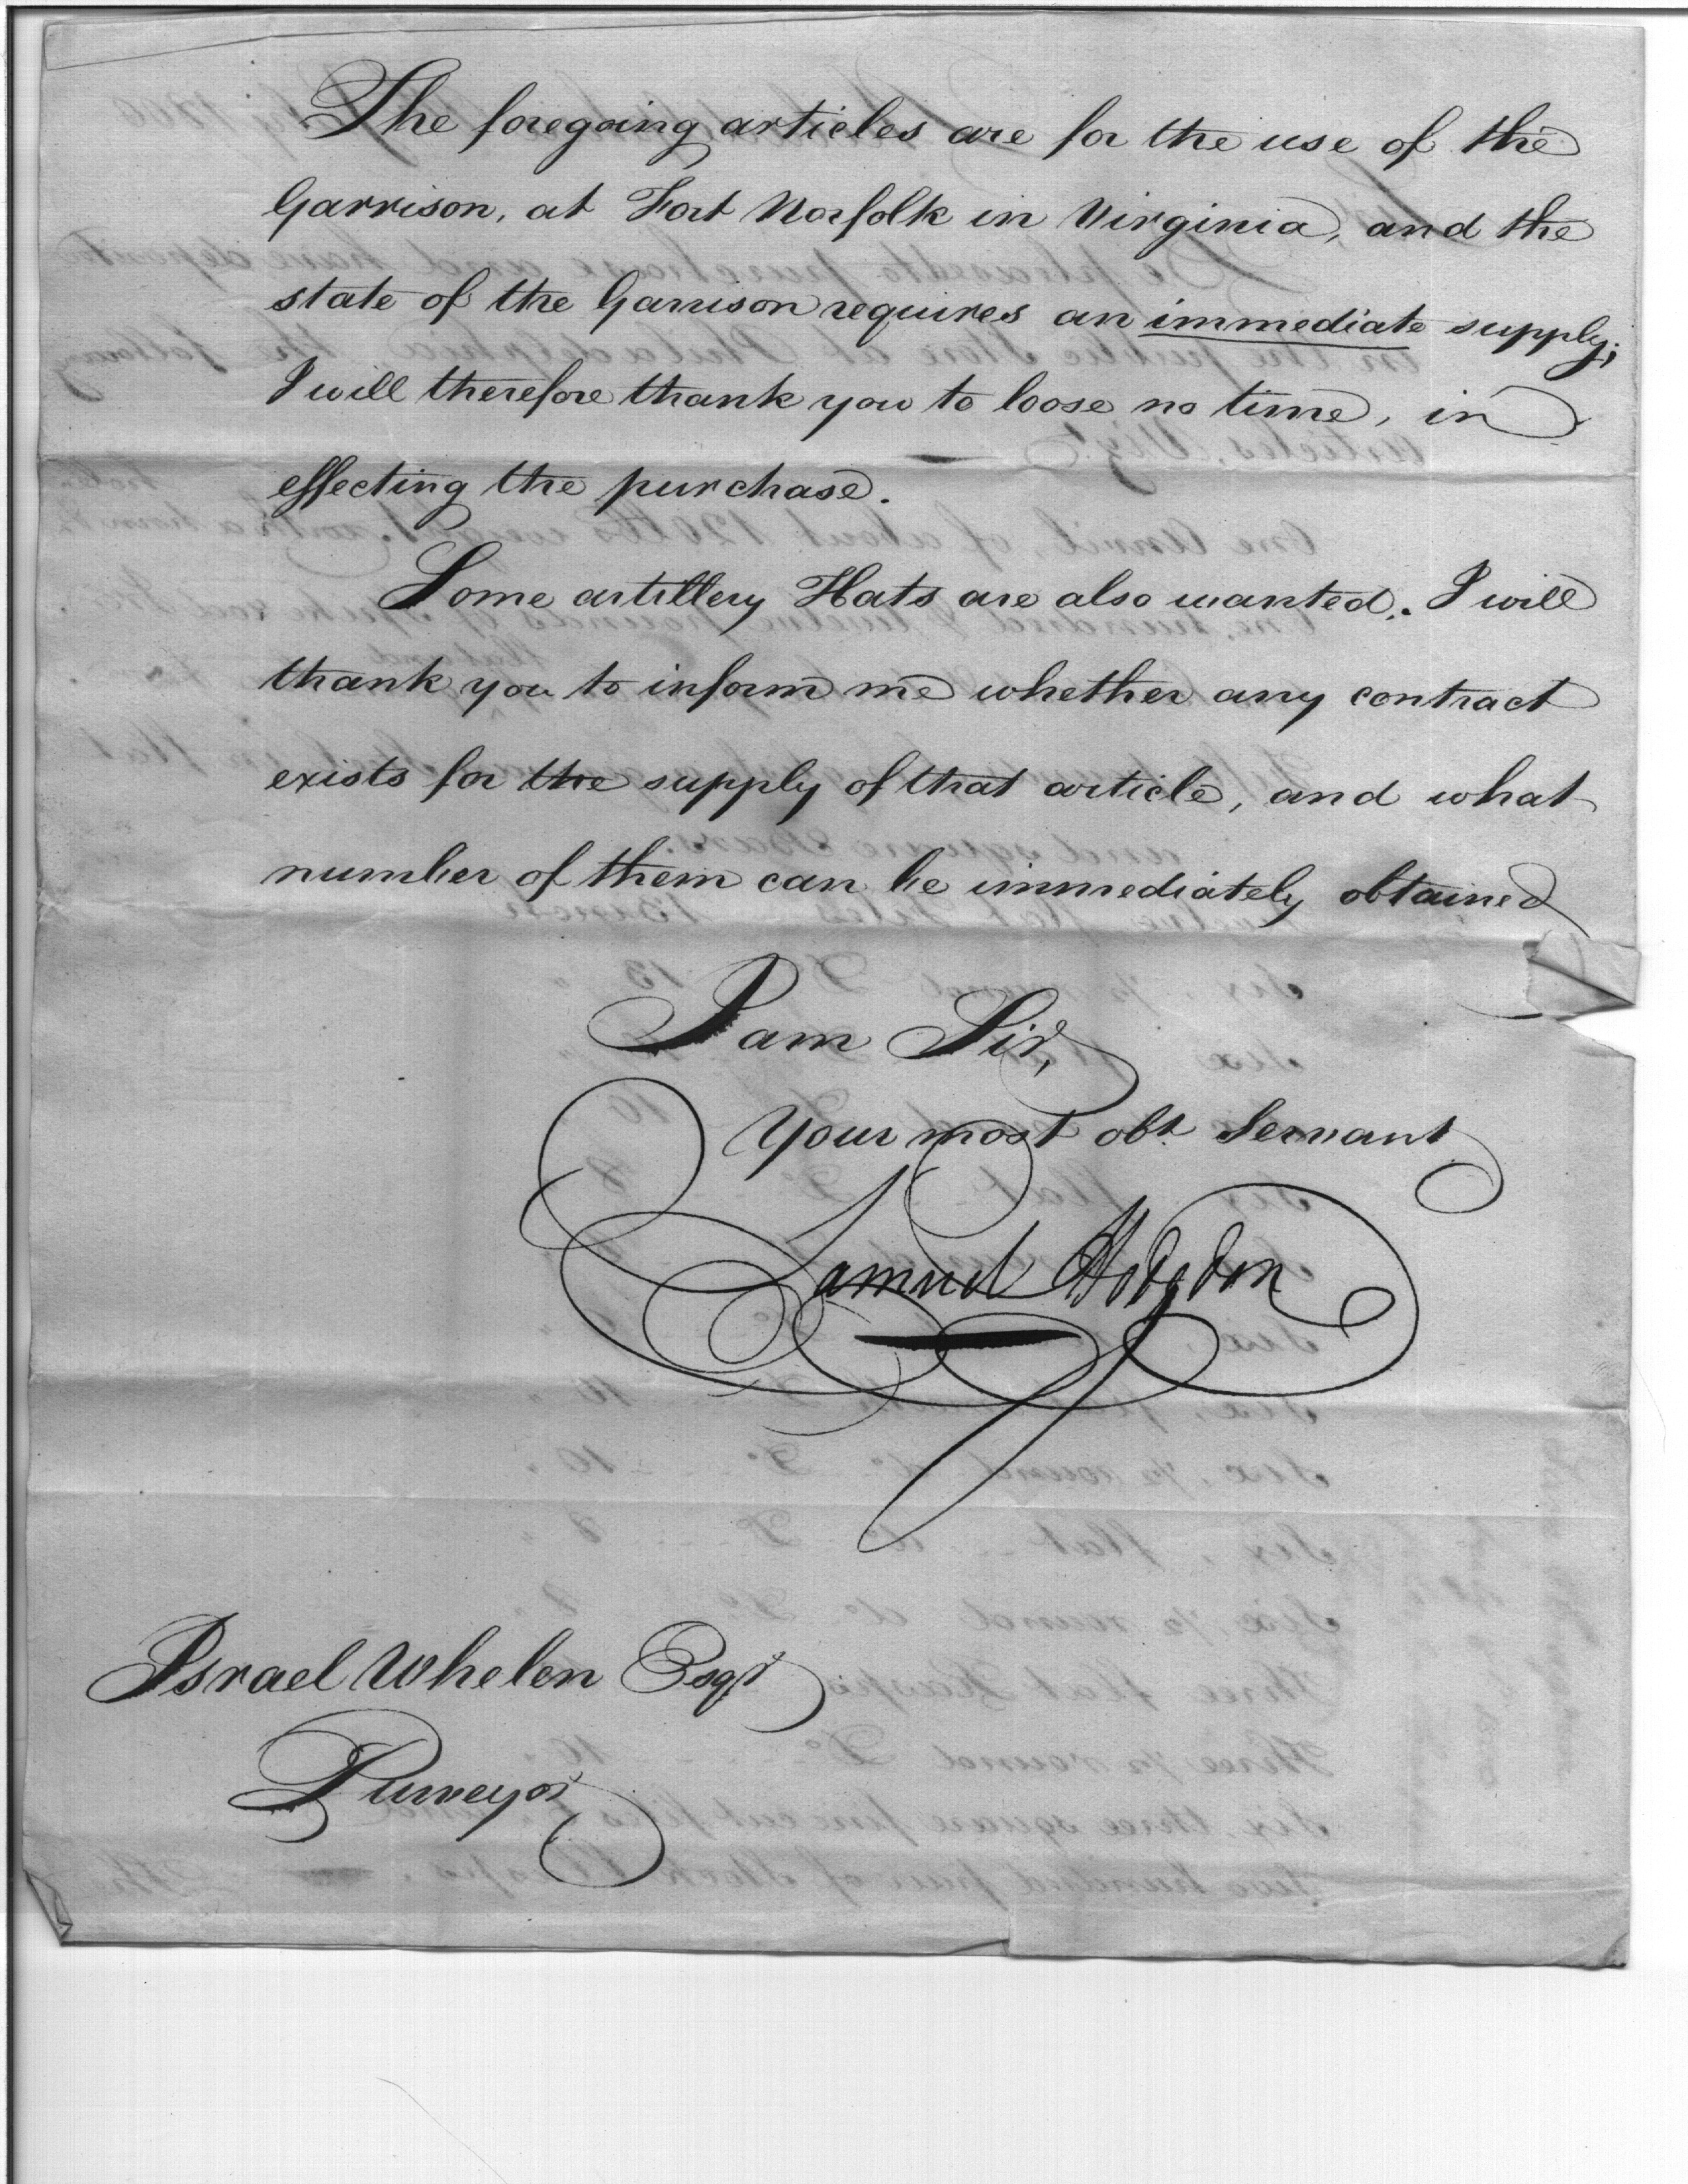 The foregoing articles are for the use of the
Garrison, at Fort Norfolk in Virginia, and the
state of the Garrison requires an immediate supply;
I will therefore thank you to loose no time, in
effecting the purchase.
Some artillery Hats are also wanted. I will
thank you to inform me whether any contract
exists for the supply of that article, and what
number of them can be immediately obtained
I am Sir,
Your most obt. Servant
Samuel Hodgdon
Israel Whelen Esqr.
Purveyor